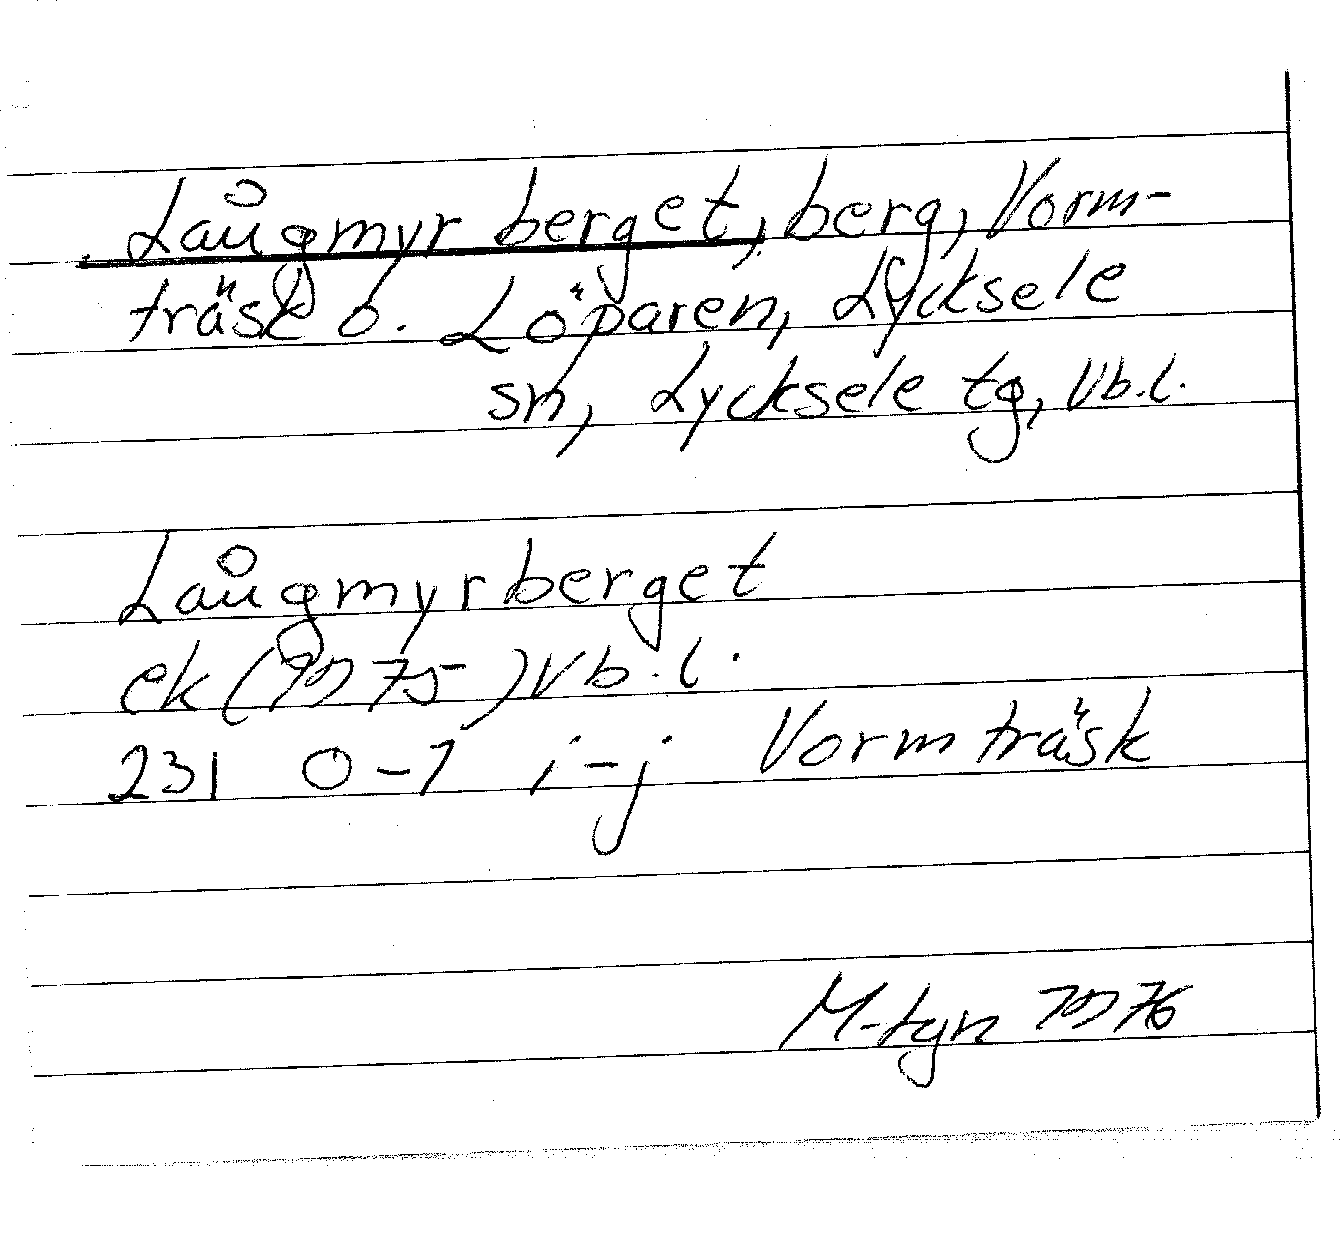 Laůgmyrberget, berg, Vorm-
träsk o. Löparen, Lycksele
sn, Lycksele tg, Vb.l.
Laůgmyrberget
ek (1975) Vb.l.
231 0-1 i-j Vormträsk
M-tgn 1976